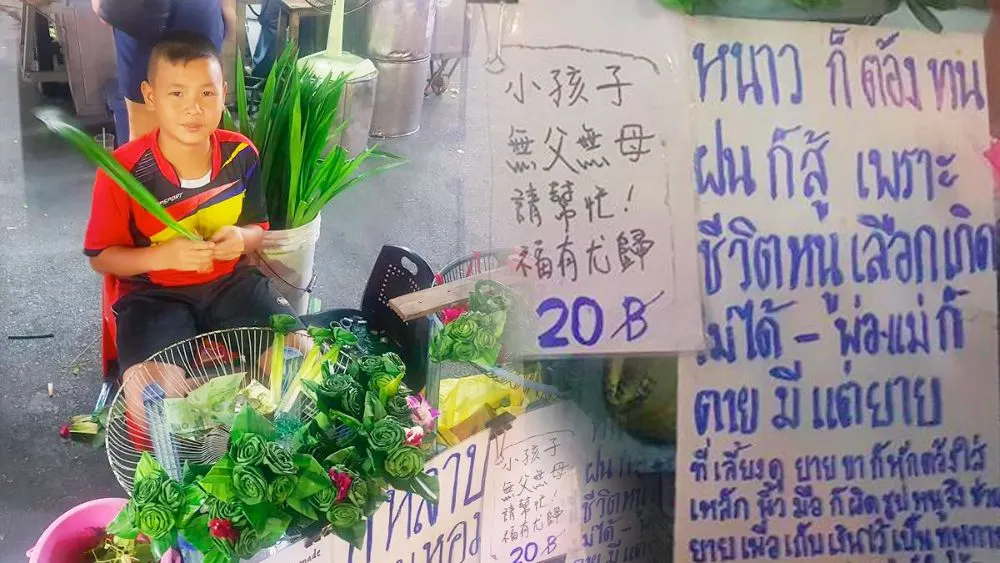 小孩子
無父無母
請幫忙!
福有尤歸
20 B
หนาว ก็ ต้อง ทน
ฝน ก็สู้ เพราะ
ชีวิตหนู เลือกเกิด
ไม่ได้ - พ่อแม่ก็
ตาย มี แต่ยาย
ที่ เลี้ยงดู ยาย ขา ก็
เหล็ก นิ้ว มือ ก็ ผิด รูป หนู
ยาย เพื่อ เก็บ เงินไว้ เป็น ทุนการ
小孩子
無父無母
請幫忙!
福有尤歸
20 B
ฝน
ชีวิต
ไม่ได้ -